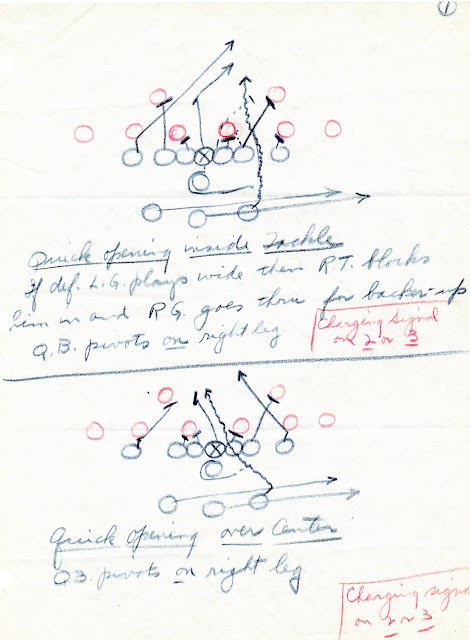 1
Quick opening inside Tackle
If def. L.G. plays wide then R.T. blocks
him in and R.G. goes thru for backer-up
Q.B. pivots on right leg
Charging Signal
on 2 or 3
Quick opening over Center
Q.B. pivots on right leg
Charging signal
on 2 or 3